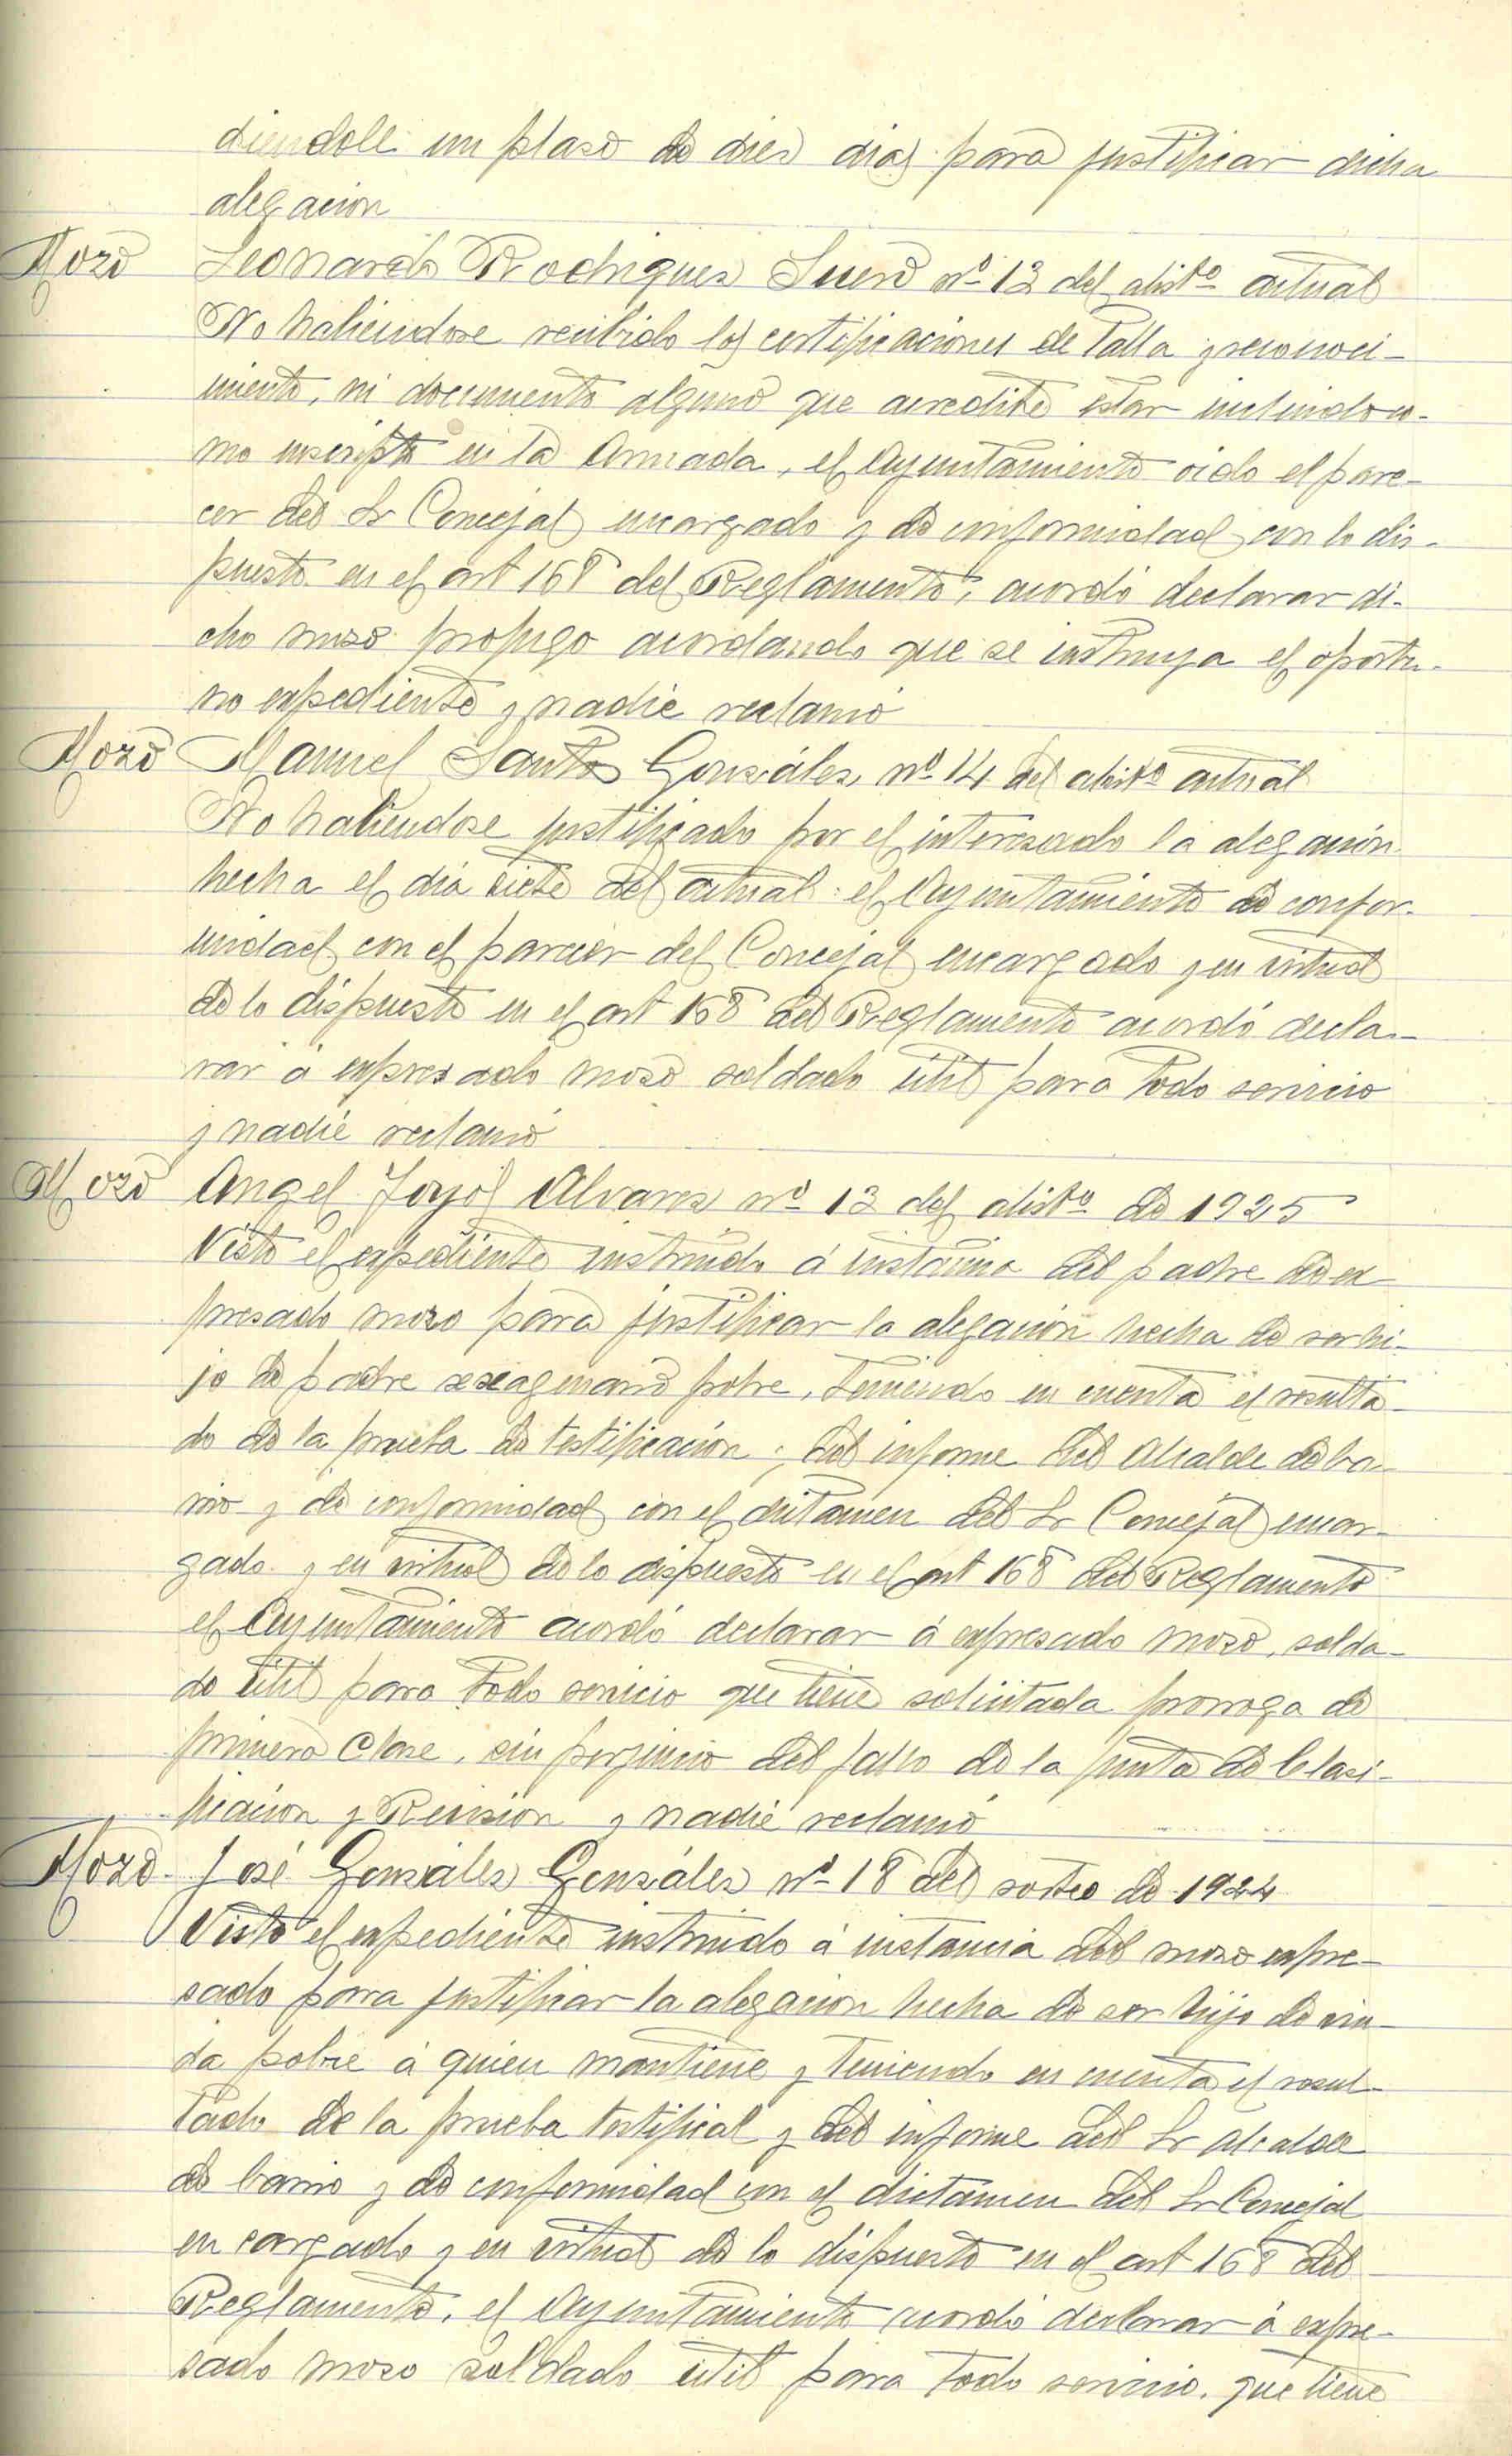 diendole un plaso de dies dias para justificar dicha
alegacion
Mozo Leonardo Rodrigues Suero nº 13 del alistº actual
No habiendose recibido las certificaciones de Talla y reconoci-
miento, ni documento alguno que acredite estar incluido co-
mo inscripto en la Armada, el Ayuntamiento oido el pare-
cer del Sr Concejal encargado y de conformidad con lo dis-
puesto en el art 168 del Reglamento, acordó declarar di-
cho moso profugo acordando que se instruya el oportu-
no expediente y nadie reclamó
Mozo Manuel Santos Gonsáles nº 14 del alistº actual
No habiendose justificado por el interesado la alegación
hecha el dia siete del actual: el Ayuntamiento de confor-
midad con el parecer del Concejal encargado y en virtud
de lo dispuesto en el art 168 del Reglamento acordó decla-
rar á expresado moso soldado útil para todo servicio
y nadie reclamó
Mozo Angel Alvares nº 13 del alistº de 1925
Visto el expediente instruido á instancia del padre de ex-
presado mozo para justificar la alegación hecha de ser hi-
jo de padre sexagenario pobre, teniendo en cuenta el resulta-
do de la prueba de testificación, del informe del Alcalde de ba-
rrio y de conformidad con el dictamen del Sr Concejal encar-
gado y en virtud de lo dispuesto en el art 168 del Reglamento
el Ayuntamiento acordó declarar á expresado moso, solda-
do útil para todo servicio que tiene solicitada prorroga de
primera Clase, sin perjuicio del fallo de la junta de Clasi-
ficación y Revision y nadie reclamó
Mozo José Gonsáles Gonsáles nº 18 del sorteo de 1924
Visto el expediente instruido á instancia del moso expre-
sado para justificar la alegacion hecha de ser hijo de viu-
da pobre á quien mantiene y teniendo en cuenta el resul-
tado de la prueba testifical y del informe del Sr Alcalde
de barrio y de conformidad con el dictamen del Sr Concejal
encargado y en virtud de lo dispuesto en el art 168 del
Reglamento, el Ayuntamiento acordó declarar á expre-
sado moso soldado útil para todo servicio, que tiene